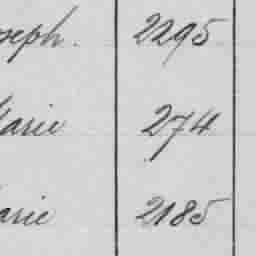 seph. 2295
Marie 274
arie 2185